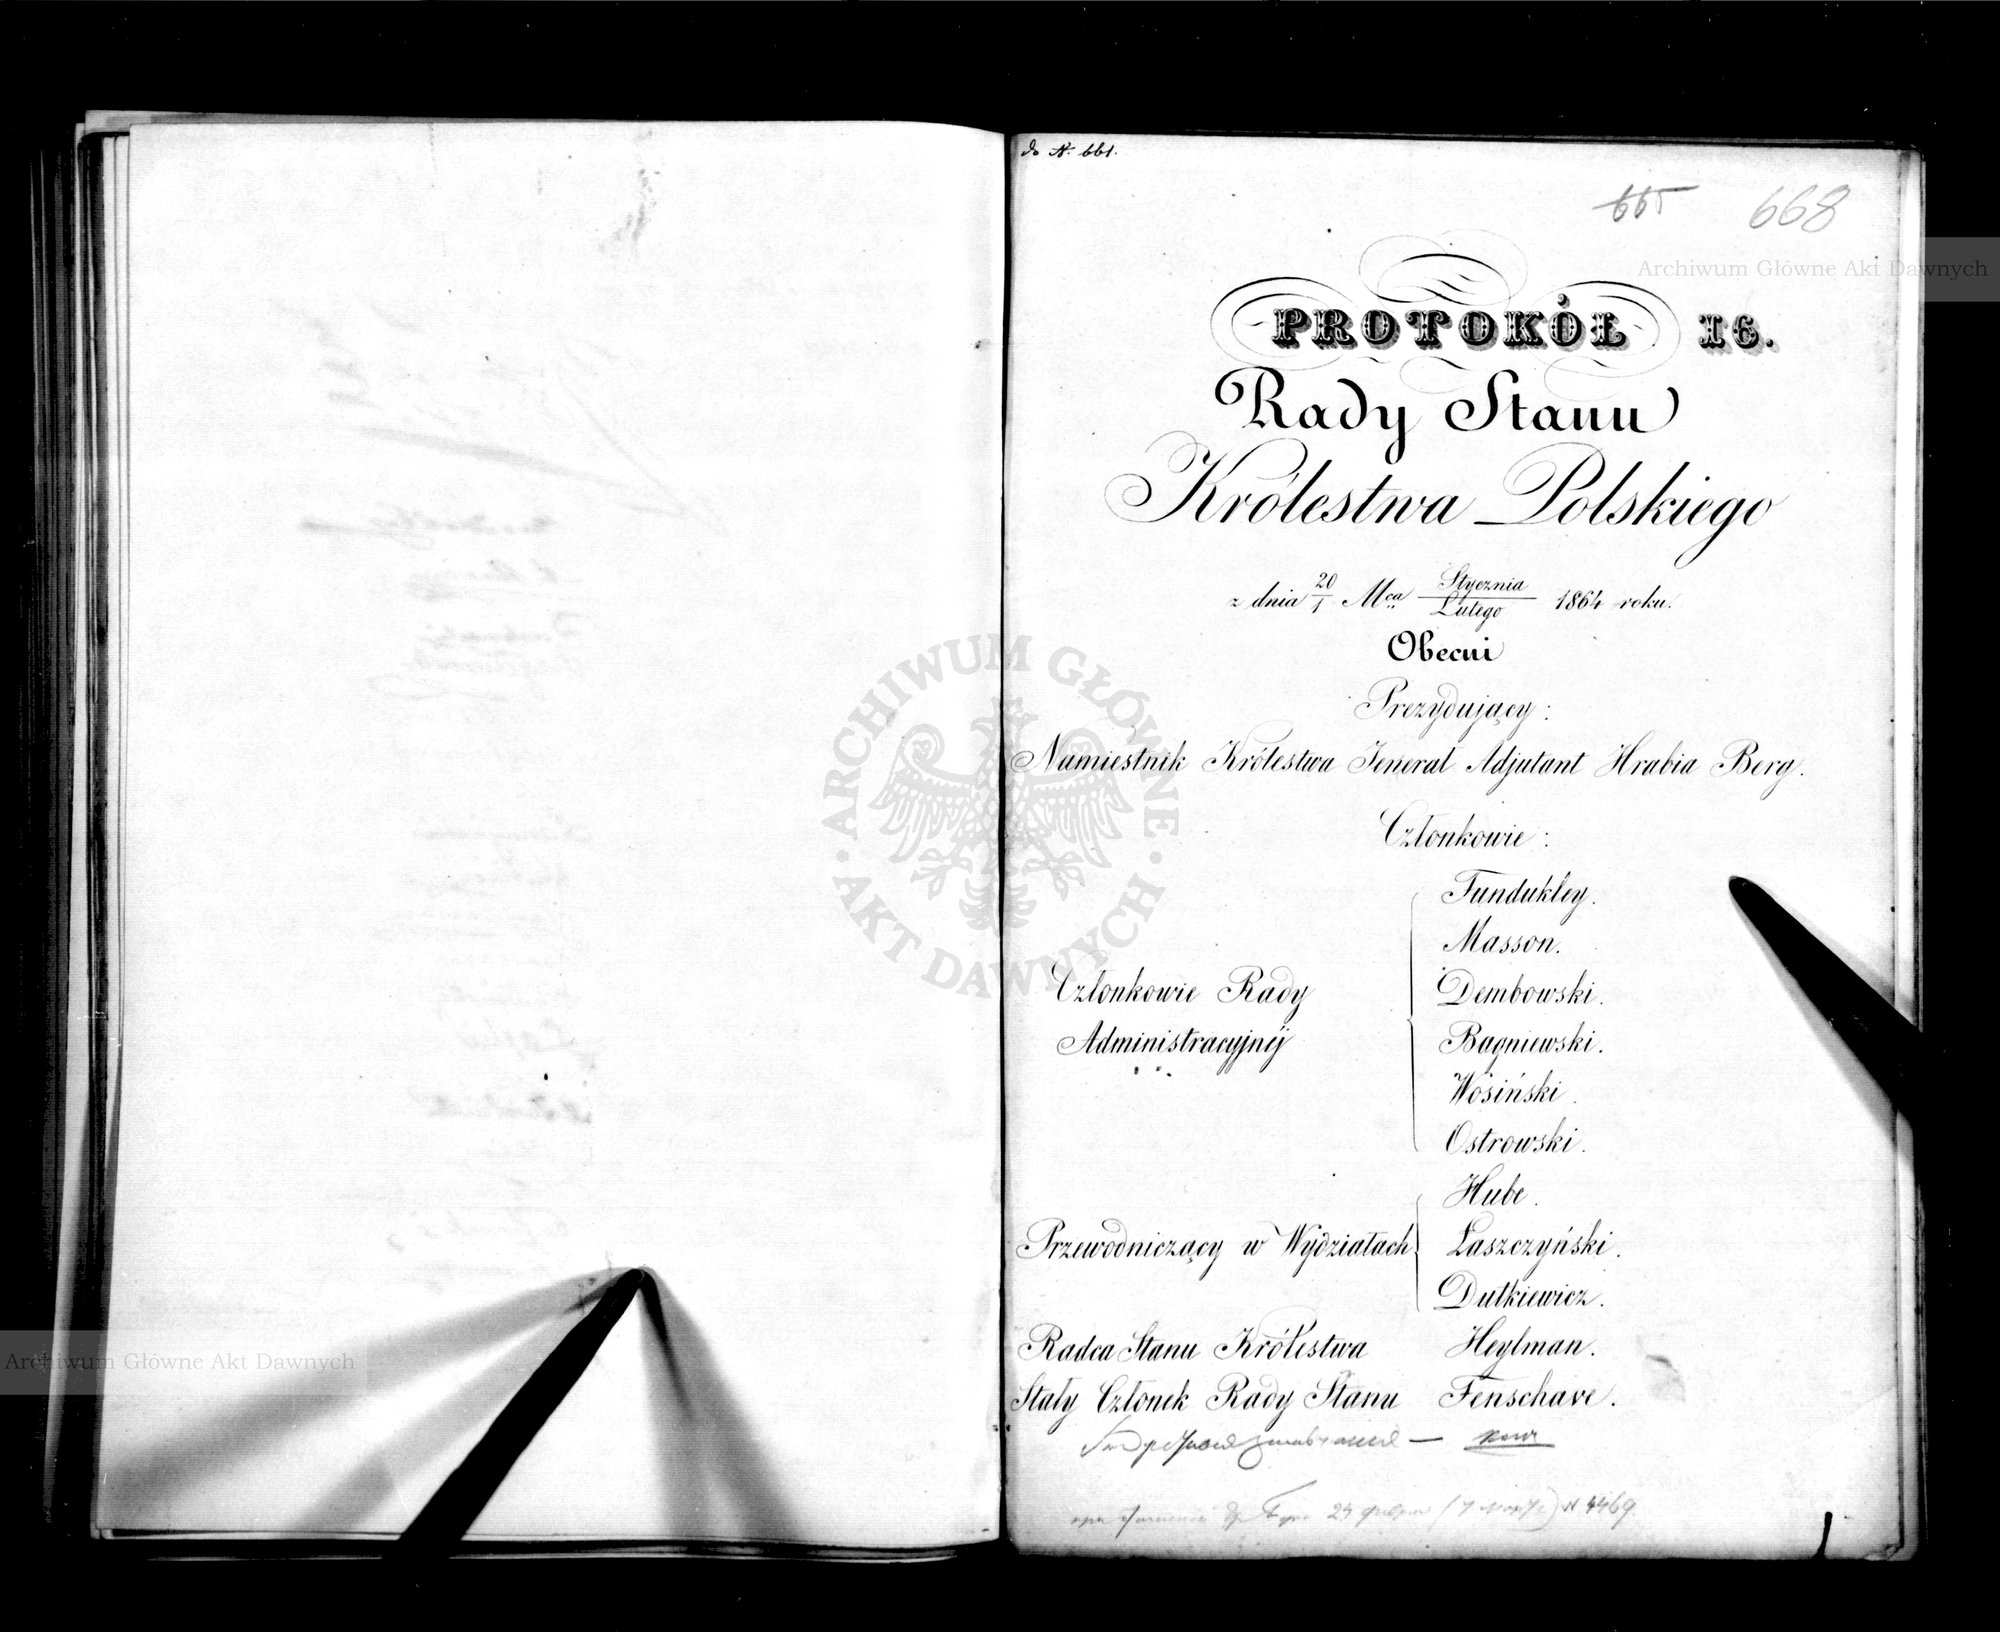 do N. 661.
665 668
PROTOKÓŁ 16.
Rady Stanu
Królestwa Polskiego
z dnia 20/1 Mca Stycznia/Lutego 1864 roku.
Obecni
Prezydujący:
Namiestnik Królestwa Jenerał Adjutant Hrabia Berg.
Członkowie:
Członkowie Rady
Administracyjnéj
Fundukley.
Masson.
Dembowski.
Bagniewski.
Wosiński.
Ostrowski.
Przewodniczący w Wydziałach
Hube.
Łaszczyński.
Dutkiewicz.
Radca Stanu Królestwa Heylman.
Stały Członek Rady Stanu Fenschave.
24 N 4469.
Archiwum Główne Akt Dawnych
ARCHIWUM GŁÓWNE AKT DAWNYCH
Archiwum Główne Akt Dawnych